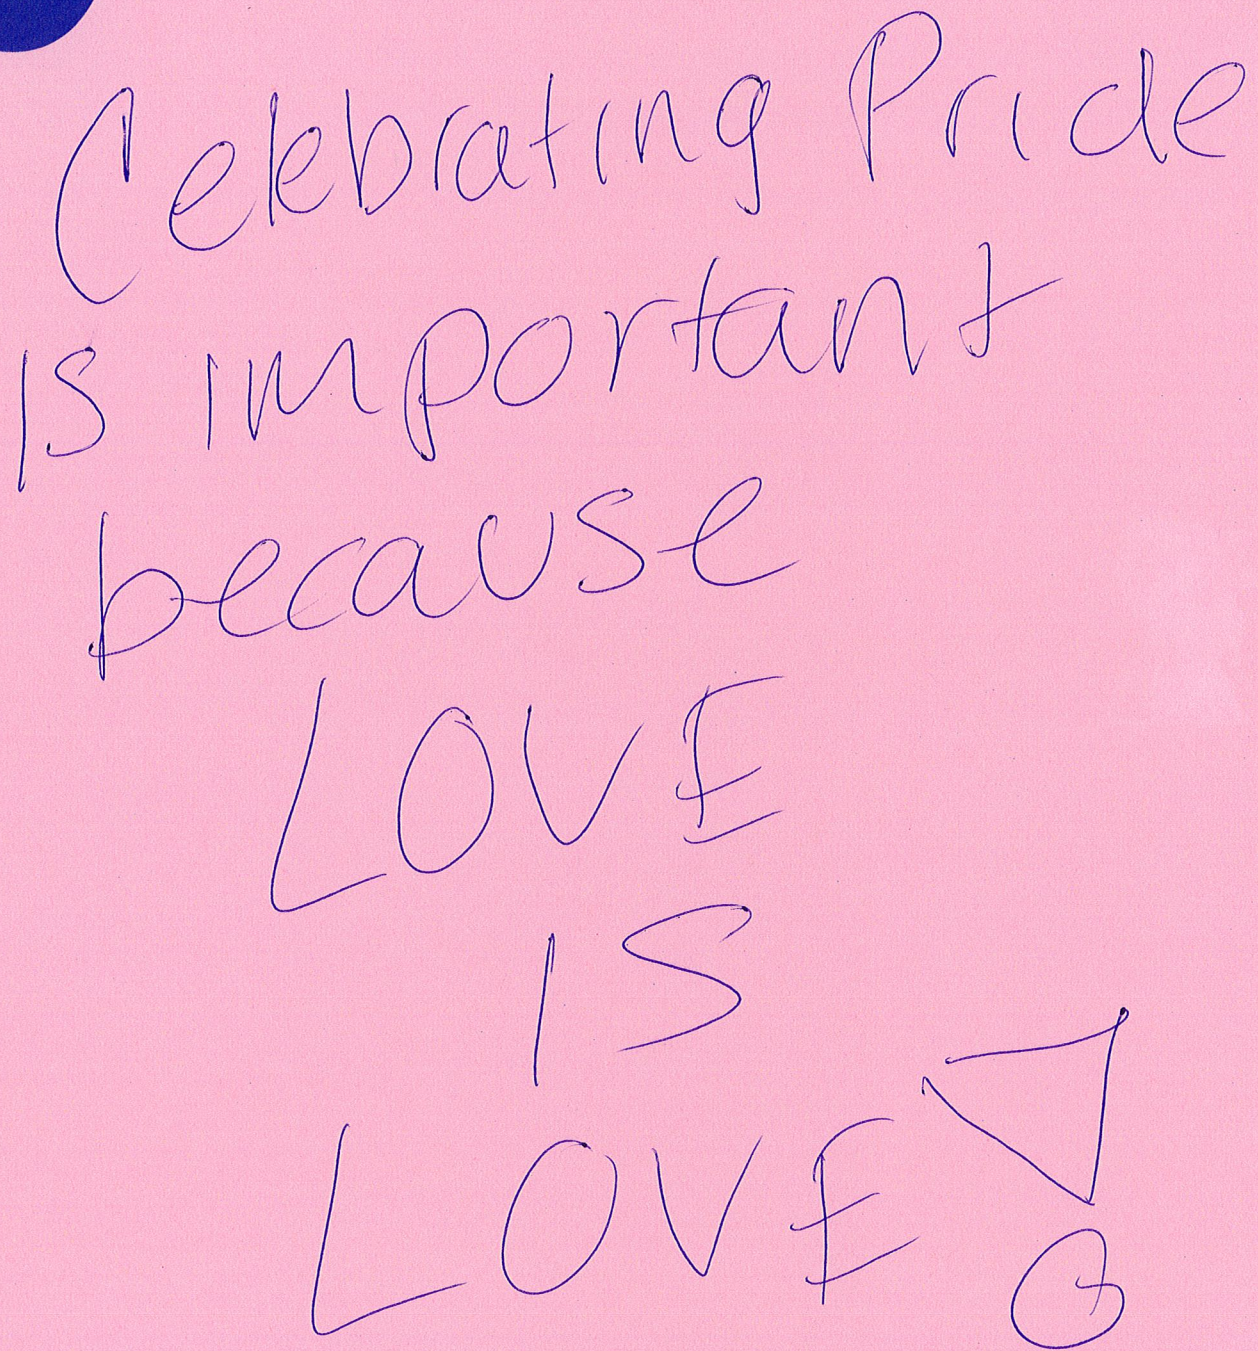 Celebrating Pride
is important
because
LOVE
IS
LOVE!